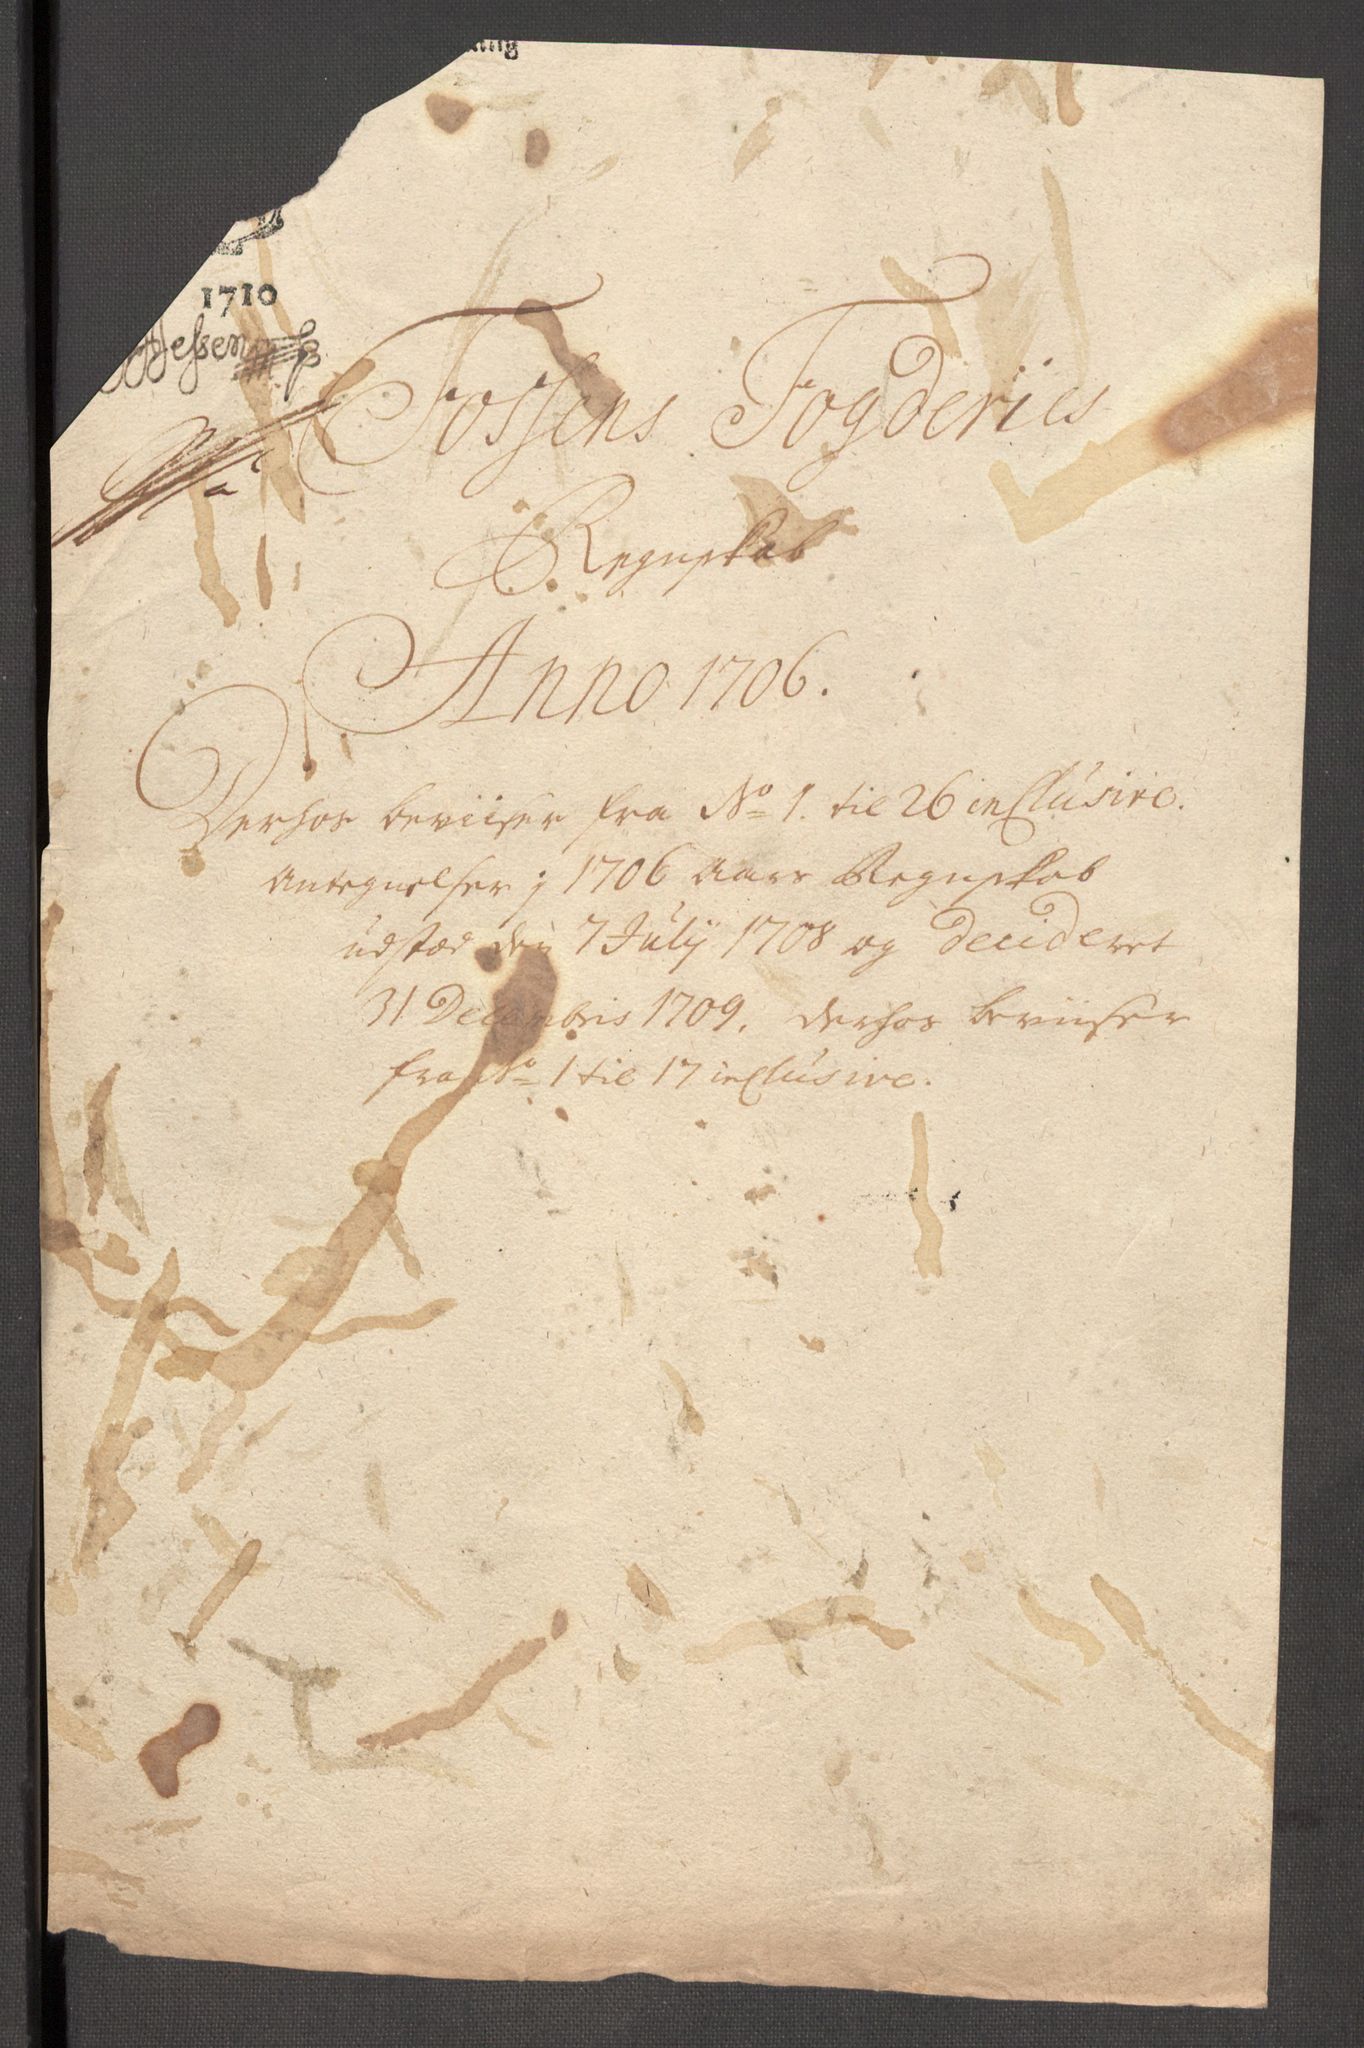 1710
Fossens Fogderies
Regnskab
Anno 1706.
Derhos beviiser fra No 1. til 26 inclusive.
Antegnelser j 1706 Aars Regnskab
udstæd den 7 Julij 1708 og decideret
31 Decembris 1709. derhos beviiser
fra No 1 til 17 inclusive.